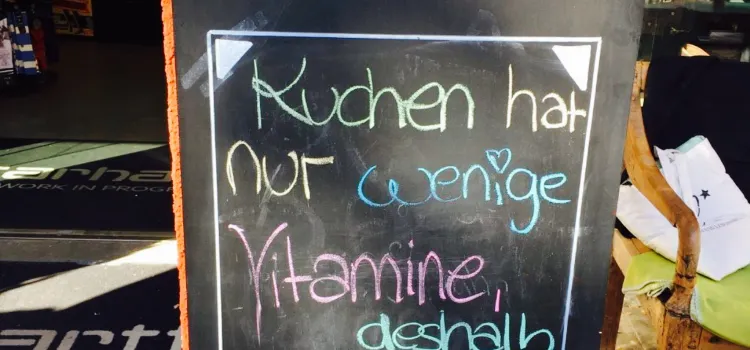 Kuchen hat
nur wenige
Vitamine,
deshalb
arha
WORK IN PROG
artt